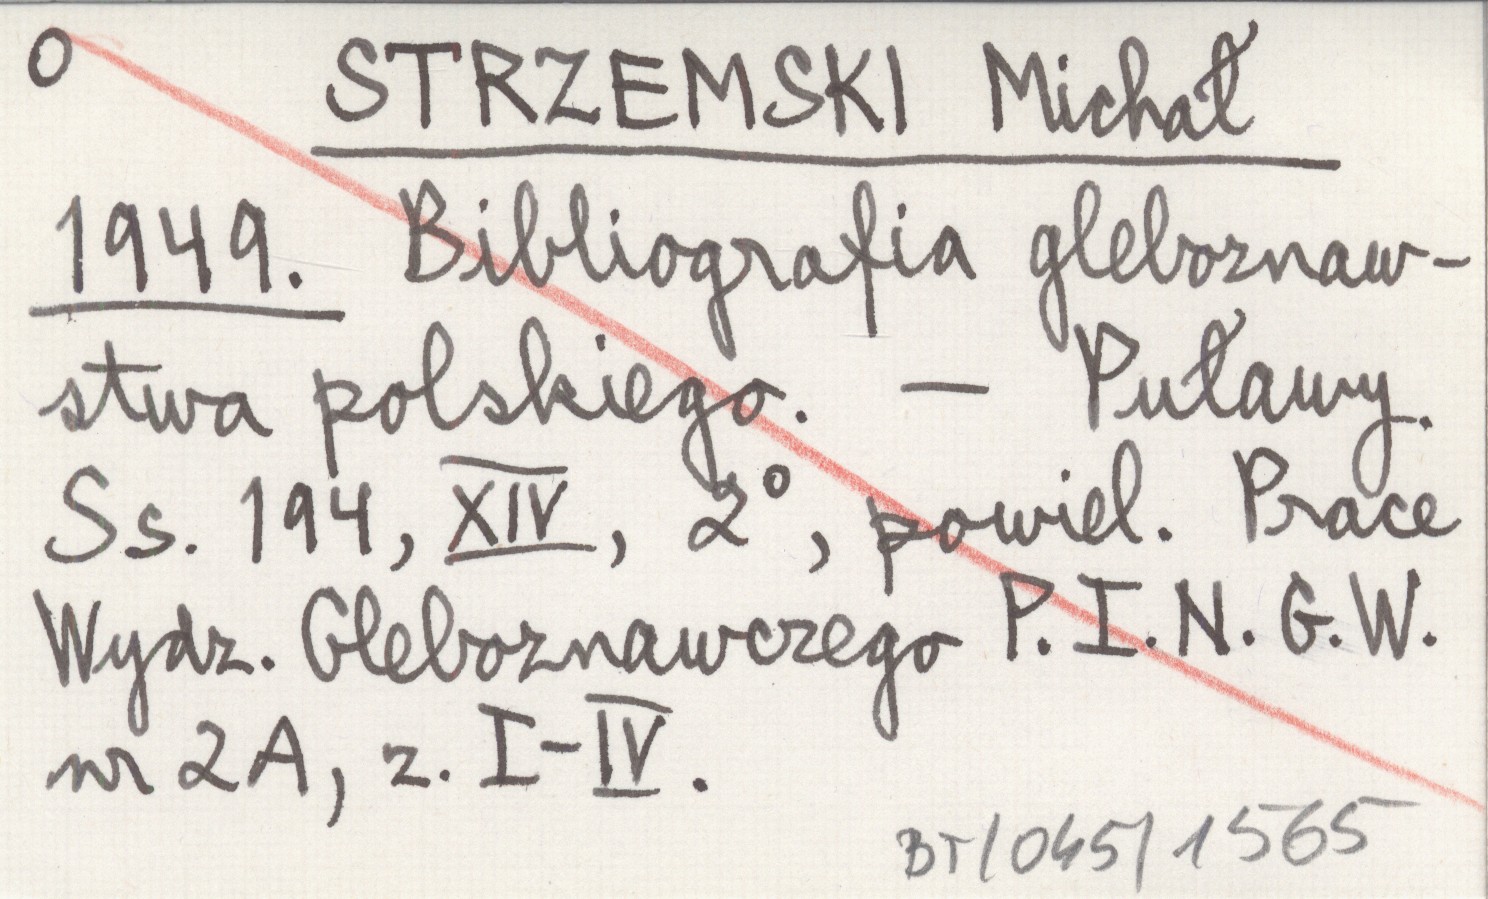 O STRZEMSKI Michał
1949. Bibliografia gleboznaw-
stwa polskiego. — Puławy.
Ss. 194, XIV, 2°, powiel. Prace
Wydz. Gleboznawczego P.I.N.G.W.
nr 2A, z. I-IV.
BT/045/1565